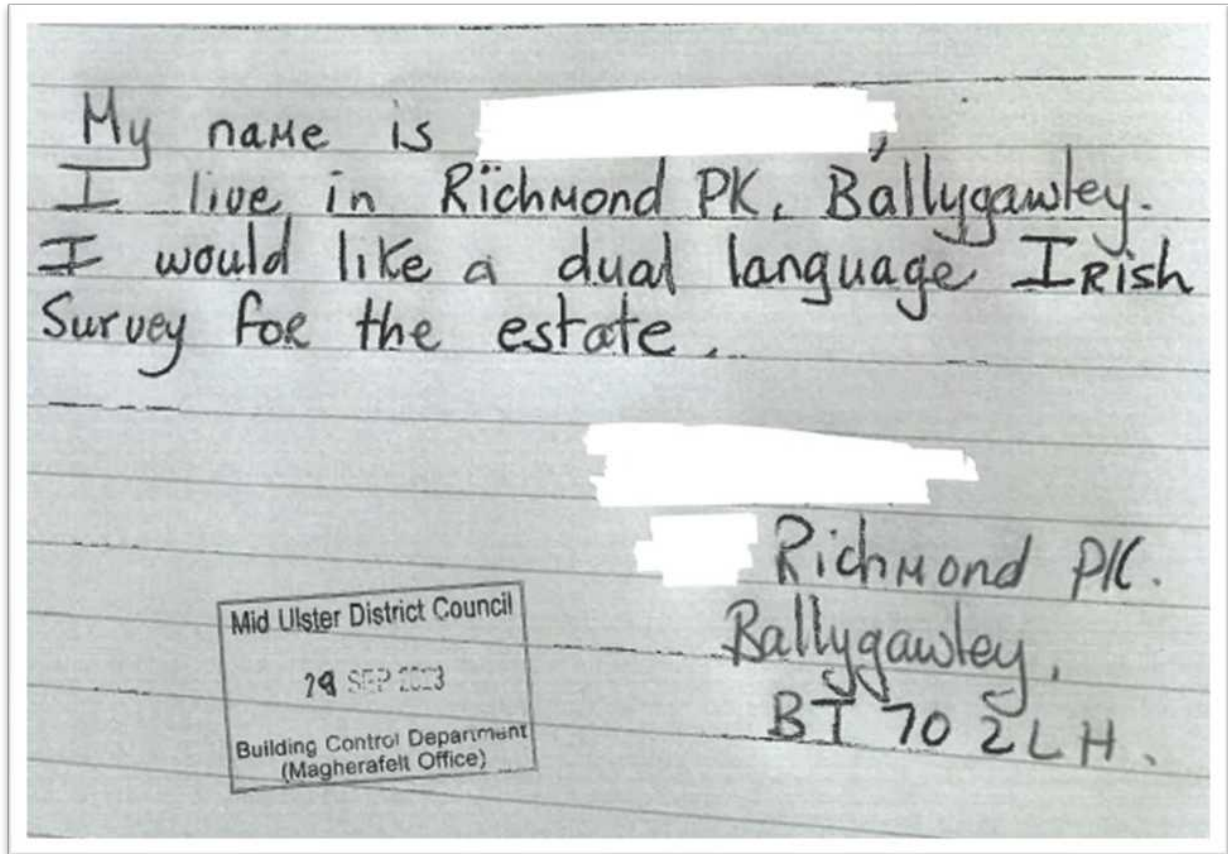 My name is ,
I live in Richmond PK. Ballygawley.
I would like a dual language Irish
Survey for the estate.
Richmond PK.
Ballygawley,
BT 70 2LH.
Mid Ulster District Council
SEP 2023
Building Control Department
(Magherafelt Office)